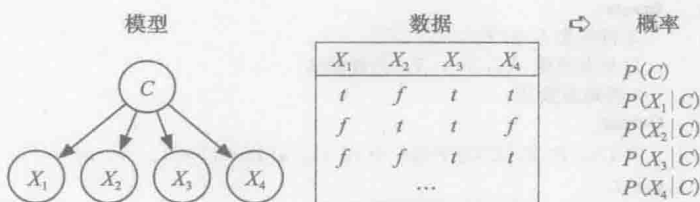 模型 数据 ⇨ 概率
C
X₁ X₂ X₃ X₄
X₁ X₂ X₃ X₄
t f t t
f t t f
f f t t
…
P(C)
P(X₁|C)
P(X₂|C)
P(X₃|C)
P(X₄|C)